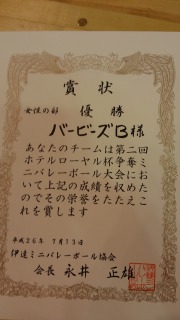 賞状
女性の部 優勝
バービーズB様
あなたのチームは第二回
ホテルローヤル杯争奪ミ
ニバレーボール大会にお
いて上記の成績を収めた
のでその栄誉をたたえこ
れを賞します
平成26年 7月13日
伊達ミニバレーボール協会
会長 永井 正雄